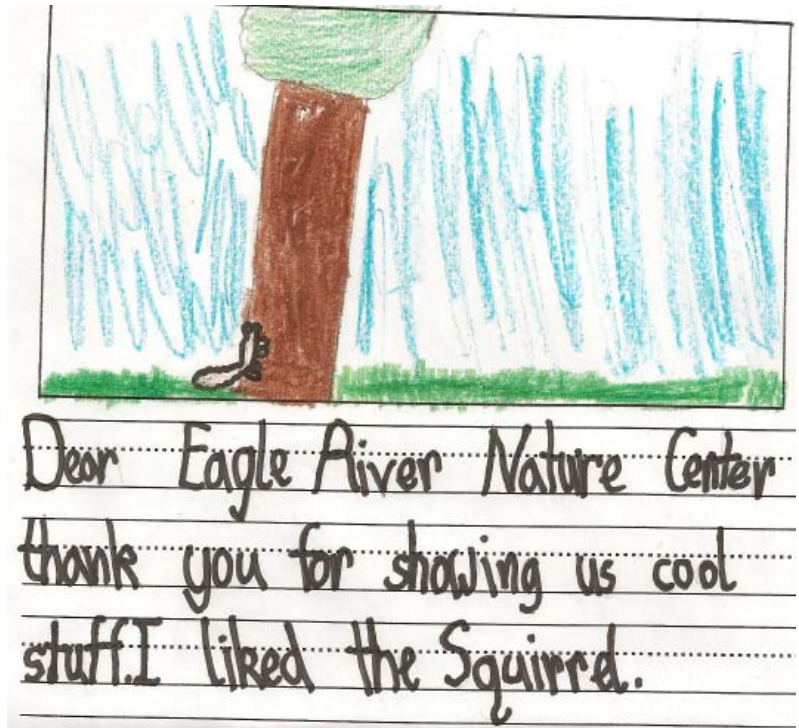 Dear Eagle River Nature Center
thank you for showing us cool
stuff.I liked the Squirrel.